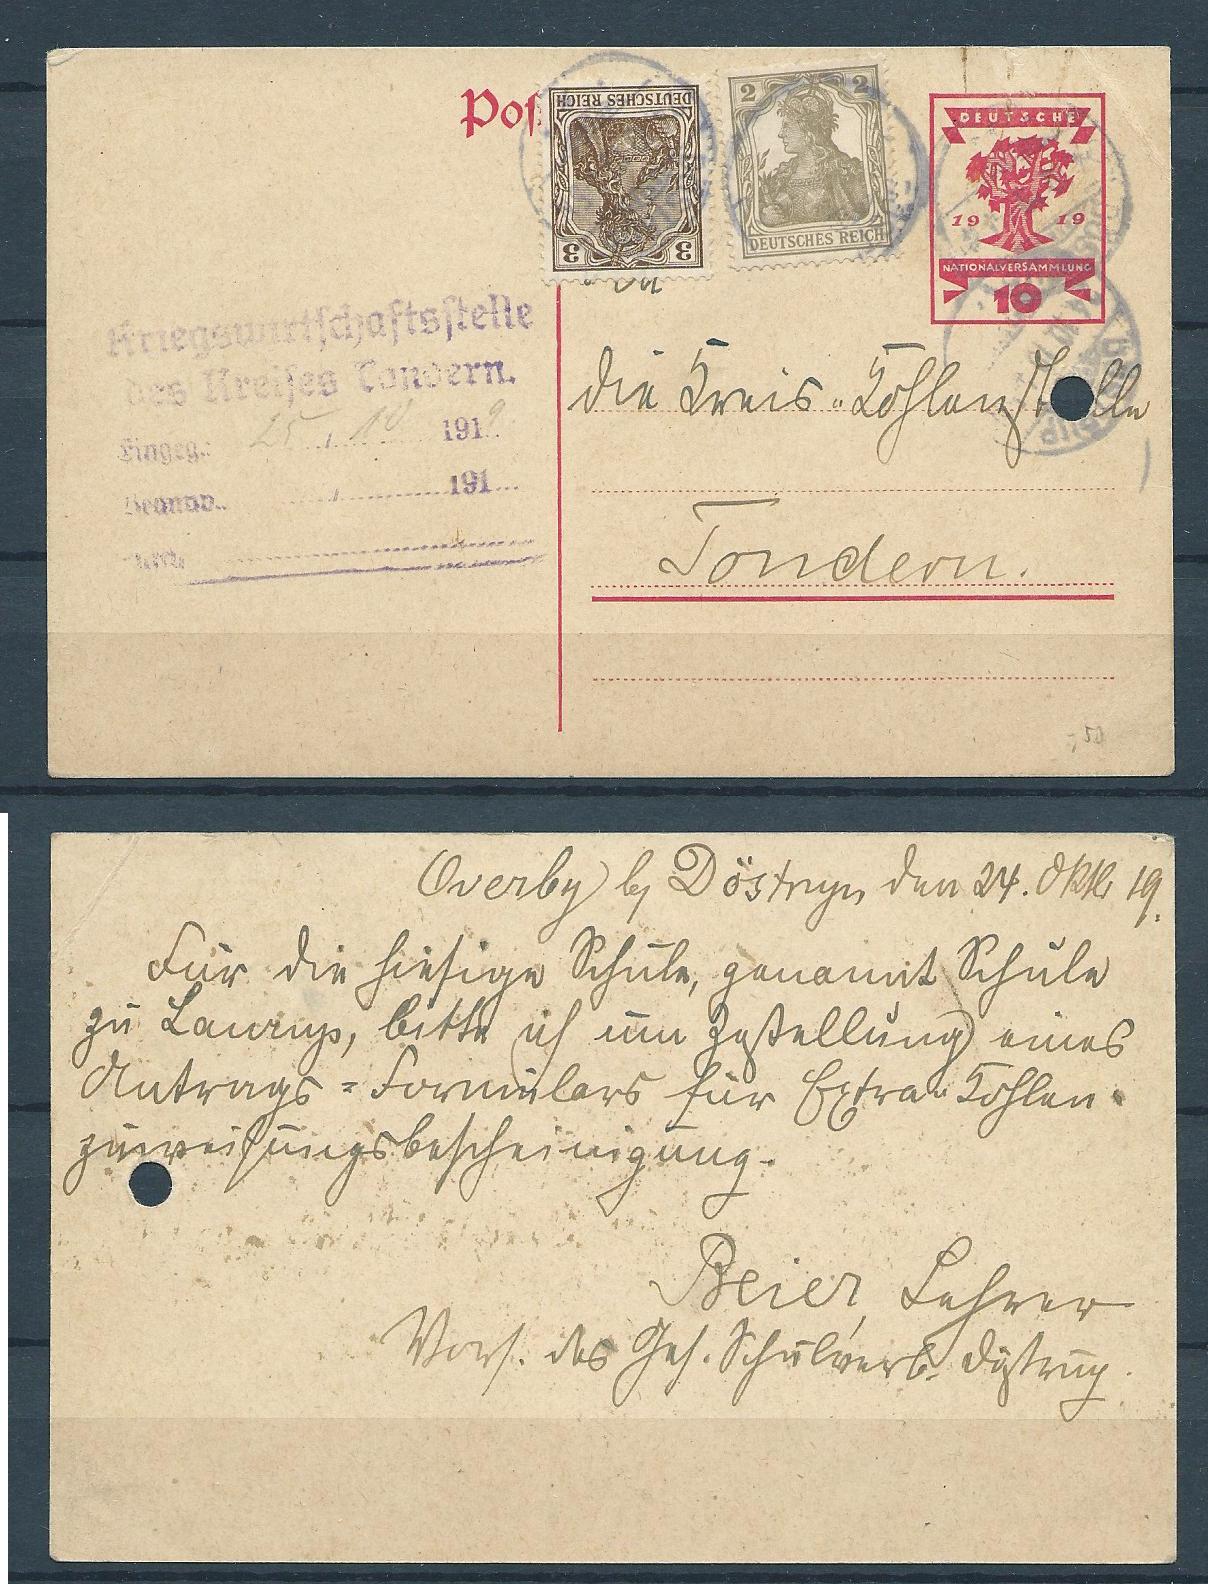 Pos
DEUTSCHES REICH
3 3
2 2
DEUTSCHES REICH
DEUTSCHE
19 19
NATIONALVERSAMMLUNG
10
An
Kriegswirtschaftsstelle
des Kreises Tondern.
Eingeg.: 25. / 10 1919
Beantw. / 191
die Kreis-Kohlenstelle
Tondern.
Overby b/ Döstrup, den 24. Oktb 19.
Für die hiesige Schule, genannt Schule
zu Laurup, bitte ich um Zustellung eines
Antrags-Formulars für Extra-Kohlen-
zuweisungsbescheinigung.
Beier, Lehrer
Vors. des Ges. Schulverb. Döstrup.